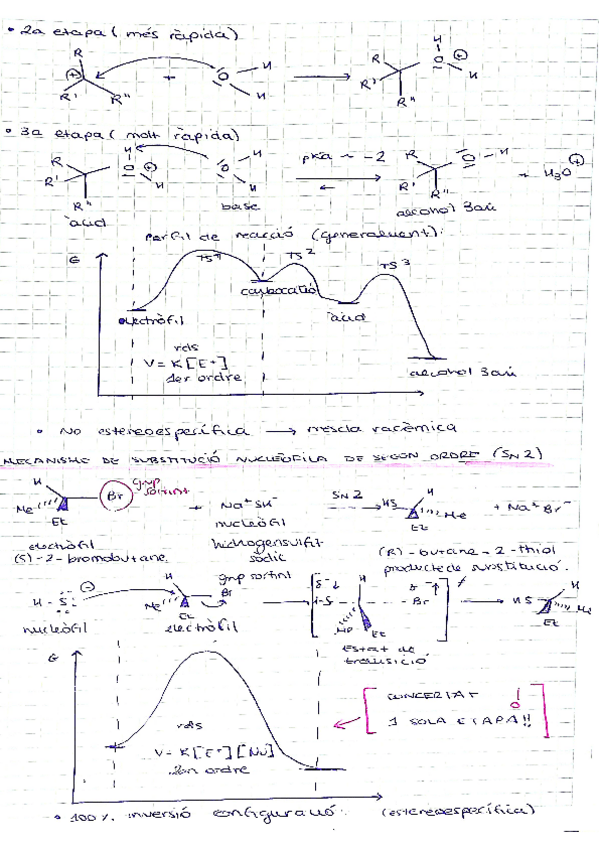 • 2a etapa (més ràpida)
R R' R'' + O H H → R R' R'' O H H
• 3a etapa (molt ràpida)
R R' R'' O H H + O H H pKa ~ -2 R R' R'' O - H + H3O+
àcid base alcohol 3ari
perfil de reacció (generalment):
G TS1 TS2 TS3
carbocatió
electròfil àcid
rds
V = K[E+]
1er ordre alcohol 3ari
• No estereoespecífica → mescla racèmica
MECANISME DE SUBSTITUCIÓ NUCLEÒFILA DE SEGON ORDRE (SN2)
H Br grup sortint Me Et + Na+SH- SN2 → HS H Me Et + Na+Br-
electròfil nucleòfil
(S)-2-bromobutane hidrogensulfit sòdic (R)-butane-2-thiol
producte de substitució.
H-S: grup sortint H Br Me Et → [ δ- H-S H Me Et Br δ- ]≠ → HS H Me Et
nucleòfil electròfil
Estat de transició
G
CONCERTAT
1 SOLA ETAPA!!
rds
V = K[E+][Nu]
2on ordre
• 100% inversió configuració. (estereoespecífica)